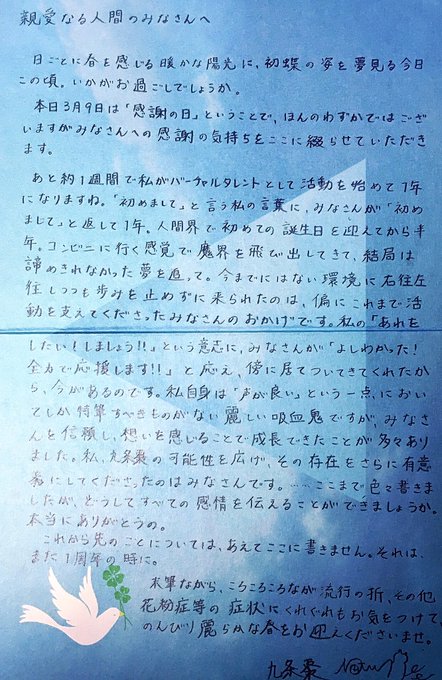 親愛なる人間のみなさんへ
日ごとに春を感じる暖かな陽光に、初蝶の姿を夢見る今日
この頃。いかがお過ごしでしょうか。
本日3月9日は「感謝の日」ということで、ほんのわずかではござ
いますがみなさんへの感謝の気持ちをここに綴らせていただき
ます。
あと約1週間で私がバーチャルタレントとして活動を始めて1年
になりますね。「初めまして」と言う私の言葉に、みなさんが「初め
まして」と返して1年。人間界で初めての誕生日を迎えてから半
年。コンビニに行く感覚で魔界を飛び出してきて、結局は
諦めきれなかった夢を追って。今までにはない環境に右往左
往しつつも歩みを止めずに来られたのは、偏にこれまで活
動を支えてくださったみなさんのおかげです。私の「あれを
したい!しましょう!!」という意志に、みなさんが「よしわかった!
全力で応援します!!」と応え、傍に居てついてきてくれたか
ら、今があるのです。私自身は「声が良い」という一点、におい
てしか特筆すべきものがない麗しい吸血鬼ですが、みなさ
んを信頼し、想いを感じることで成長できたことが多々あり
ました。私、九条棗の可能性を広げ、その存在をさらに有意
義にしてくださったのはみなさんです。……ここまで色々書きま
したが、どうしてすべての感情を伝えることができましょうか。
本当にありがとうの。
これから先のことについては、あえてここに書きません。それは、
また1周年の時に。
末筆ながら、ころころころなが流行の折、その他
花粉症等の症状にくれぐれもお気をつけて、
のんびり麗らかな春をお迎えくださいませ。
九条棗